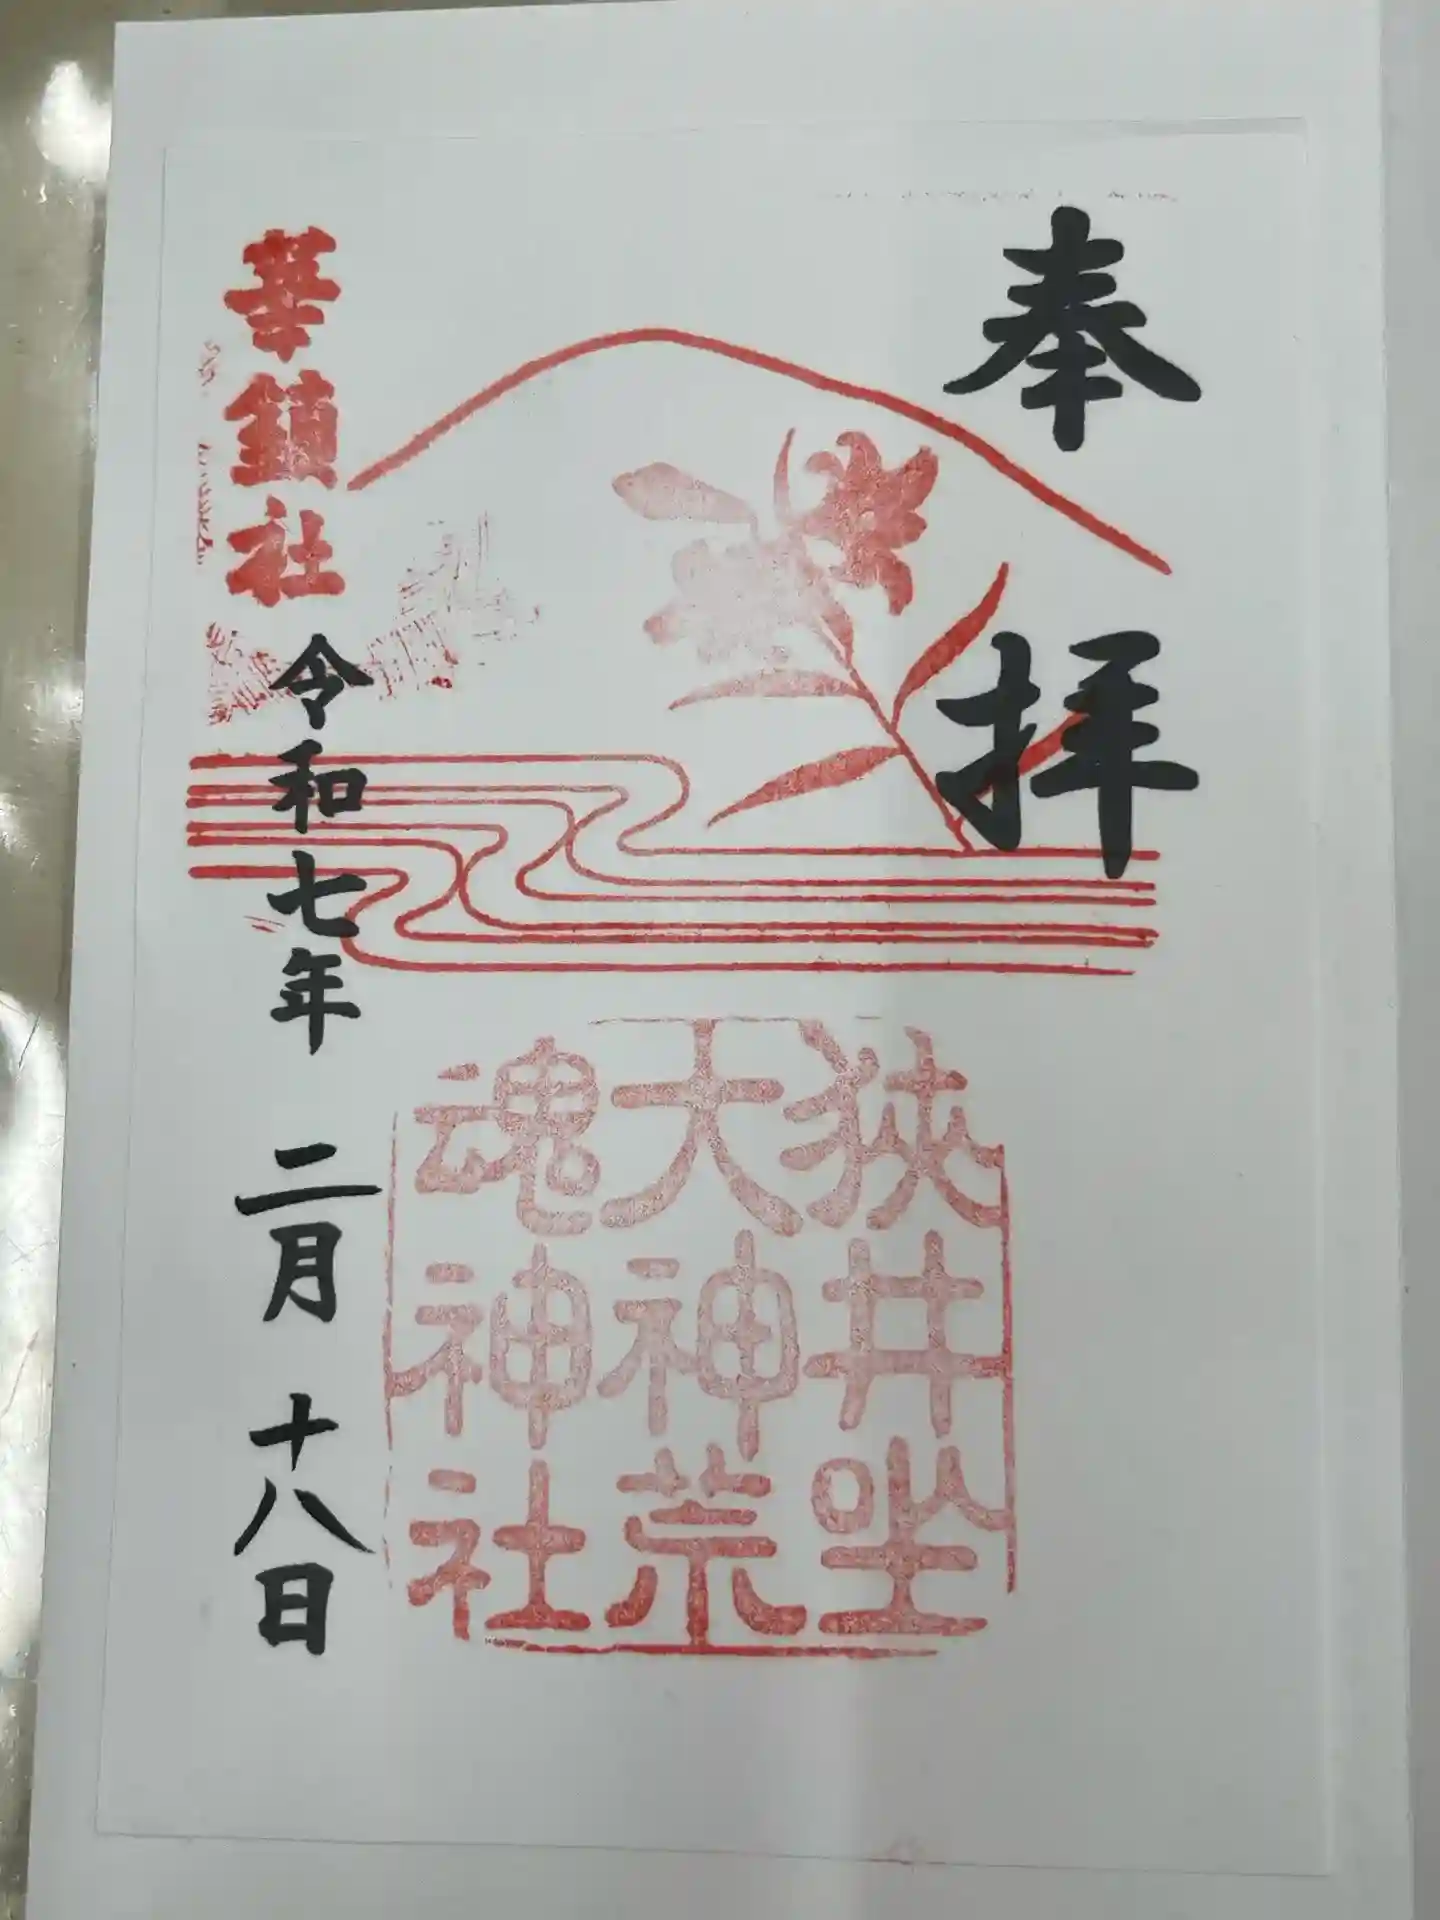 奉拝
狭井坐
大神荒
魂神社
華鎮社
令和七年 二月 十八日